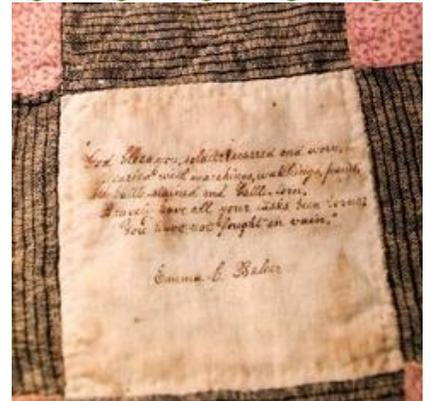 "God bless you, soldier! scarred and worn,
Wearied with marchings, watchings, pains,
All battle-stained and battle-torn,
Bravely have all your tasks been borne;
You have not fought in vain."
Emma C.